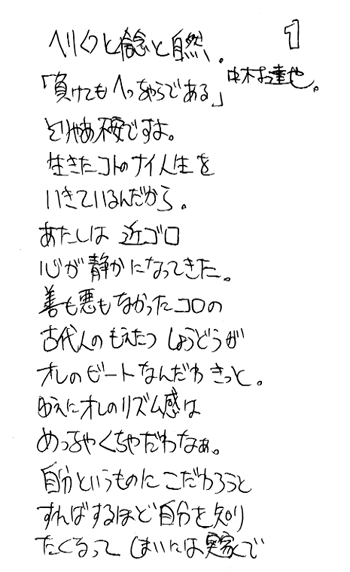 ヘリクツと信念と自然。 1
「負けてもへっちゃらである」 中木打達也。
とりゃあ不安ですよ。
生きたコトのナイ人生を
いきているんだから。
あたしは 近ゴロ
心が静かになってきた。
善も悪もなかったコロの
古代人のもえたつしょうどうが
オレのビートなんだわ きっと。
ゆえにオレのリズム感は
めっちゃくちゃだわなぁ。
自分というものに こだわろうと
すればするほど自分を知り
たくなって しまいには実家で